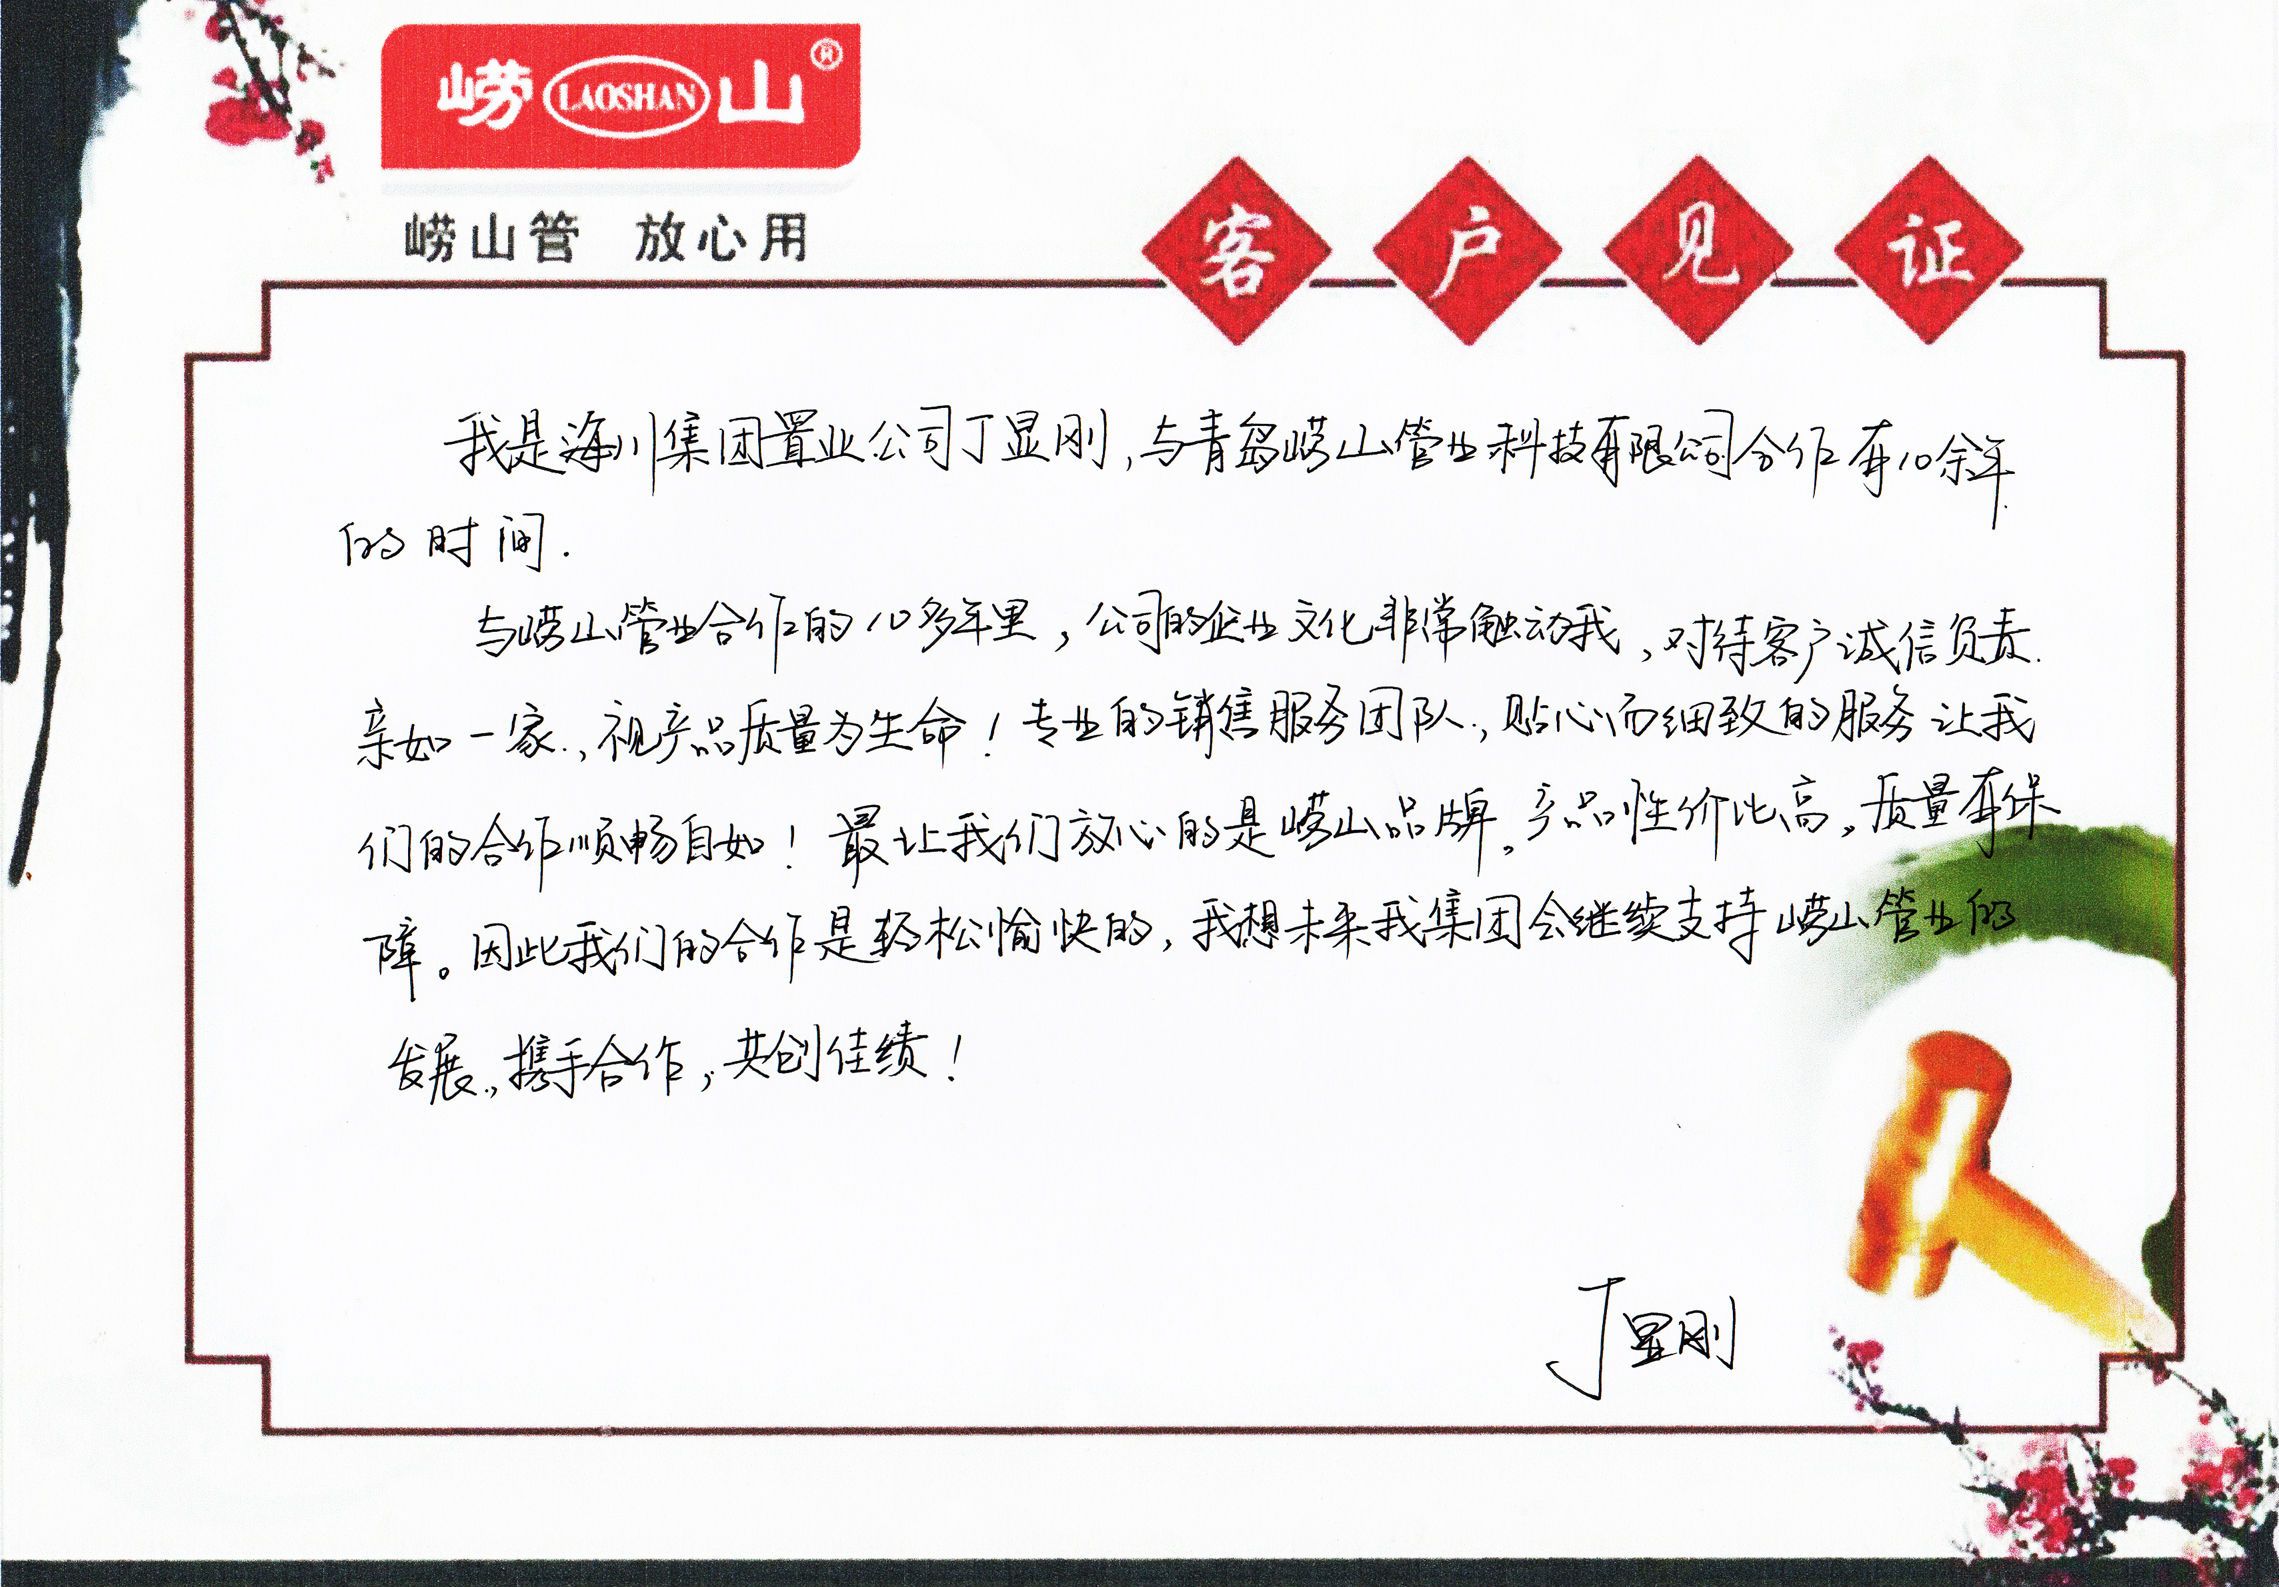 崂 LAOSHAN 山®
崂山管 放心用
客户见证
我是海川集团置业公司丁显刚,与青岛崂山管业科技有限公司合作有10余年
的时间.
与崂山管业合作的10多年里,公司的企业文化非常触动我,对待客户诚信负责.
亲如一家.,视产品质量为生命!专业的销售服务团队.,贴心而细致的服务让我
们的合作顺畅自如!最让我们放心的是崂山品牌。产品性价比高,质量有保
障。因此我们的合作是轻松愉快的,我想未来我集团会继续支持崂山管业的
发展.,携手合作,共创佳绩!
丁显刚